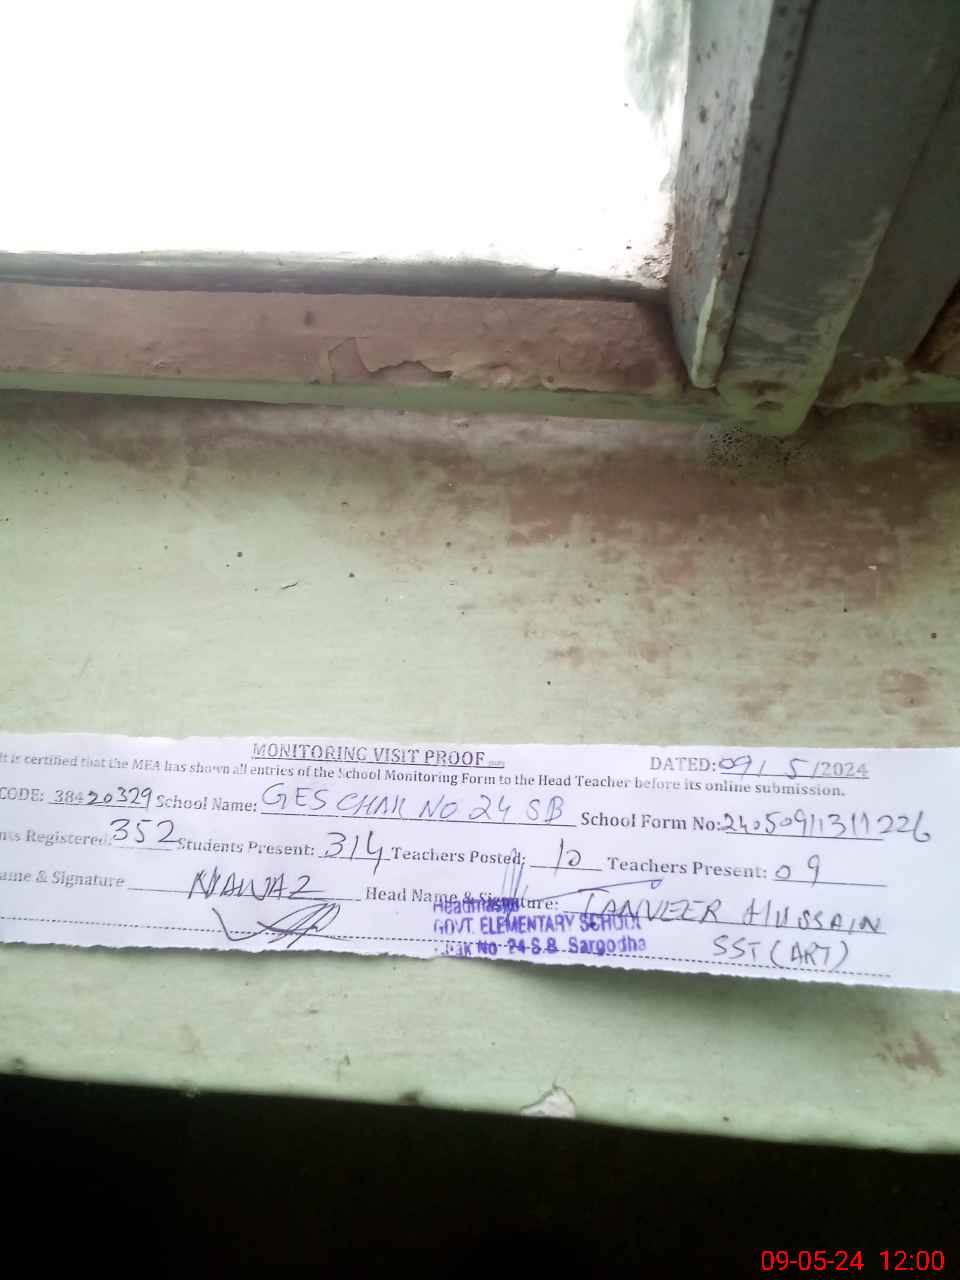 MONITORING VISIT PROOF DATED: 09/5/2024
It is certified that the MEA has shown all entries of the School Monitoring Form to the Head Teacher before its online submission.
CODE: 38420329 School Name: GES CHAK NO 24 SB School Form No: 24050911311226
nts Registered: 352 Students Present: 314 Teachers Posted: 10 Teachers Present: 09
ame & Signature NAWAZ Head Name & Signature: TANVEER HUSSAIN
SST (ART)
Headmaster
GOVT. ELEMENTARY SCHOOL
Chak No 24 S.B. Sargodha
09-05-24 12:00